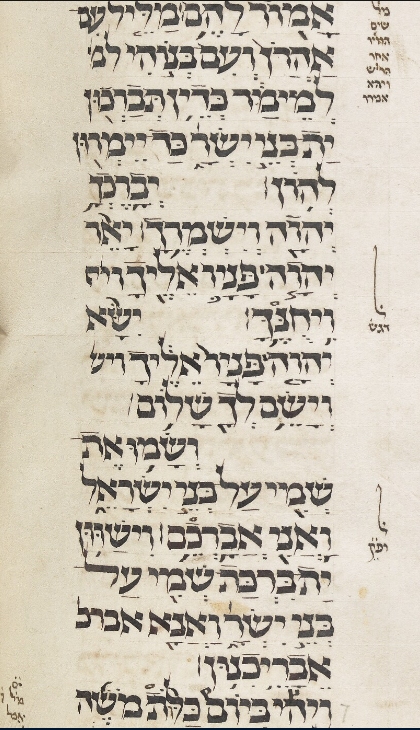 אמור להם מליל עם
אהרן ועם בנוהי למ
למימר כדין תברכון
ית בני ישר כד יימרון
להון יברכך
יהוה וישמרך יאר
יהוה פניו אליך ויח
ויחנך ישא
יהוה פניו אליך ויש
וישם לך שלום
ושמו את
שמי על בני ישראל
ואני אברכם וישוון
ית ברכת שמי על
בני ישר ואנא אברכ
אבריכנון
ויהי ביום כלת משה